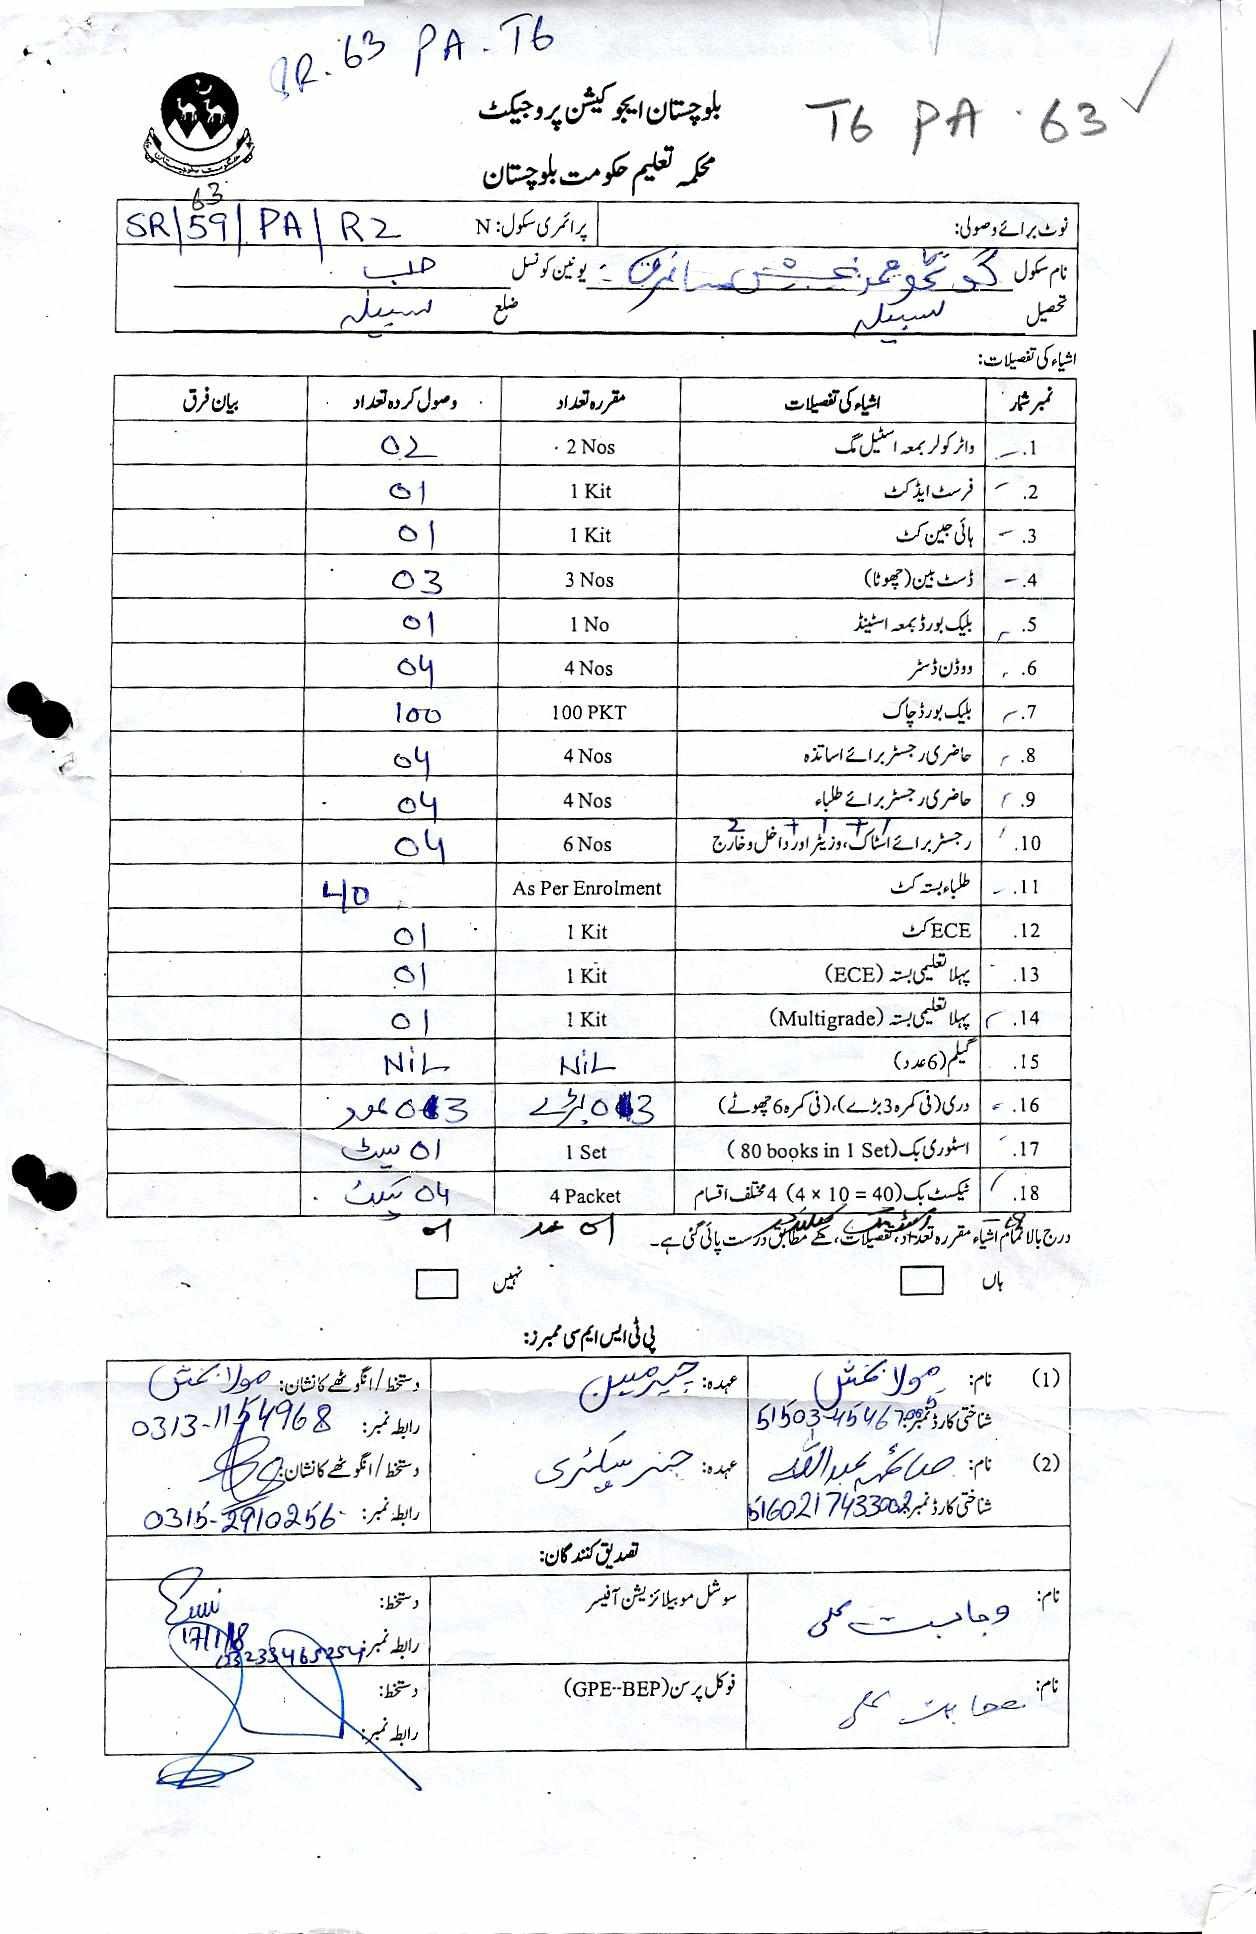 SR. 63 PA - T6
T6 PA . 63
بلوچستان ایجوکیشن پروجیکٹ
محکمہ تعلیم حکومت بلوچستان
63
نوٹ برائے وصولی: پرائمری سکول: N SR/59/PA/R2
نام سکول گوٹھ محمد بخش یونین کونسل حب
تحصیل لسبیلہ ضلع لسبیلہ
اشیاء کی تفصیلات:
نمبر شمار اشیاء کی تفصیلات مقررہ تعداد وصول کردہ تعداد بیان فرق
1. واٹر کولر بمعہ اسٹیل مگ 2 Nos 02
2. فرسٹ ایڈ کٹ 1 Kit 01
3. ہائی جین کٹ 1 Kit 01
4. ڈسٹ بین (چھوٹا) 3 Nos 03
5. بلیک بورڈ بمعہ اسٹینڈ 1 No 01
6. ووڈن ڈسٹر 4 Nos 04
7. بلیک بورڈ چاک 100 PKT 100
8. حاضری رجسٹر برائے اساتذہ 4 Nos 04
9. حاضری رجسٹر برائے طلباء 4 Nos 04
2 + 1 + 1
10. رجسٹر برائے اسٹاک، وزیٹر اور داخل و خارج 6 Nos 04
11. طلباء بستہ کٹ As Per Enrolment 40
12. ECE کٹ 1 Kit 01
13. پہلا تعلیمی بستہ (ECE) 1 Kit 01
14. پہلا تعلیمی بستہ (Multigrade) 1 Kit 01
15. گیلم (6 عدد) NiL NiL
16. دری (فی کمرہ 3 بڑے)، (فی کمرہ 6 چھوٹے) 03 بڑے 03 عدد
17. اسٹوری بک (80 books in 1 Set) 1 Set 01 سیٹ
18. ٹیکسٹ بک (4 × 10 = 40) 4 مختلف اقسام 4 Packet 04 پیکٹ
01 عدد 01
درج بالا تمام اشیاء مقررہ تعداد، تفصیلات، کے مطابق درست پائی گئی ہے۔
ہاں نہیں
پی ٹی ایس ایم سی ممبرز:
(1) نام: مولا بخش عہدہ: چیرمین دستخط / انگوٹھے کا نشان: مولا بخش
شناختی کارڈ نمبر: رابطہ نمبر: 0313-1154968
(2) نام: عبداللہ عہدہ: جنرل سیکٹری دستخط / انگوٹھے کا نشان:
شناختی کارڈ نمبر: 5160217433002 رابطہ نمبر: 0315-2910256
تصدیق کنندگان:
نام: وجاہت علی سوشل موبیلائزیشن آفیسر دستخط:
17/1/18
رابطہ نمبر: 03233465254
نام: فوکل پرسن (GPE--BEP) دستخط:
رابطہ نمبر: